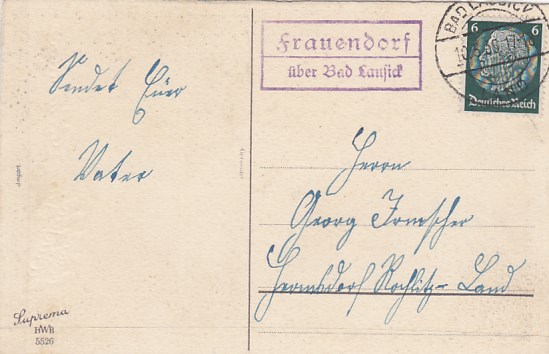 Sendet Euer
Vater
Suprema
HWB
5526
Frauendorf
über Bad Lausick
BAD LAUSICK
6 6
Deutsches Reich
Herrn
Georg Irmscher
Hermsdorf Rochlitz-Land